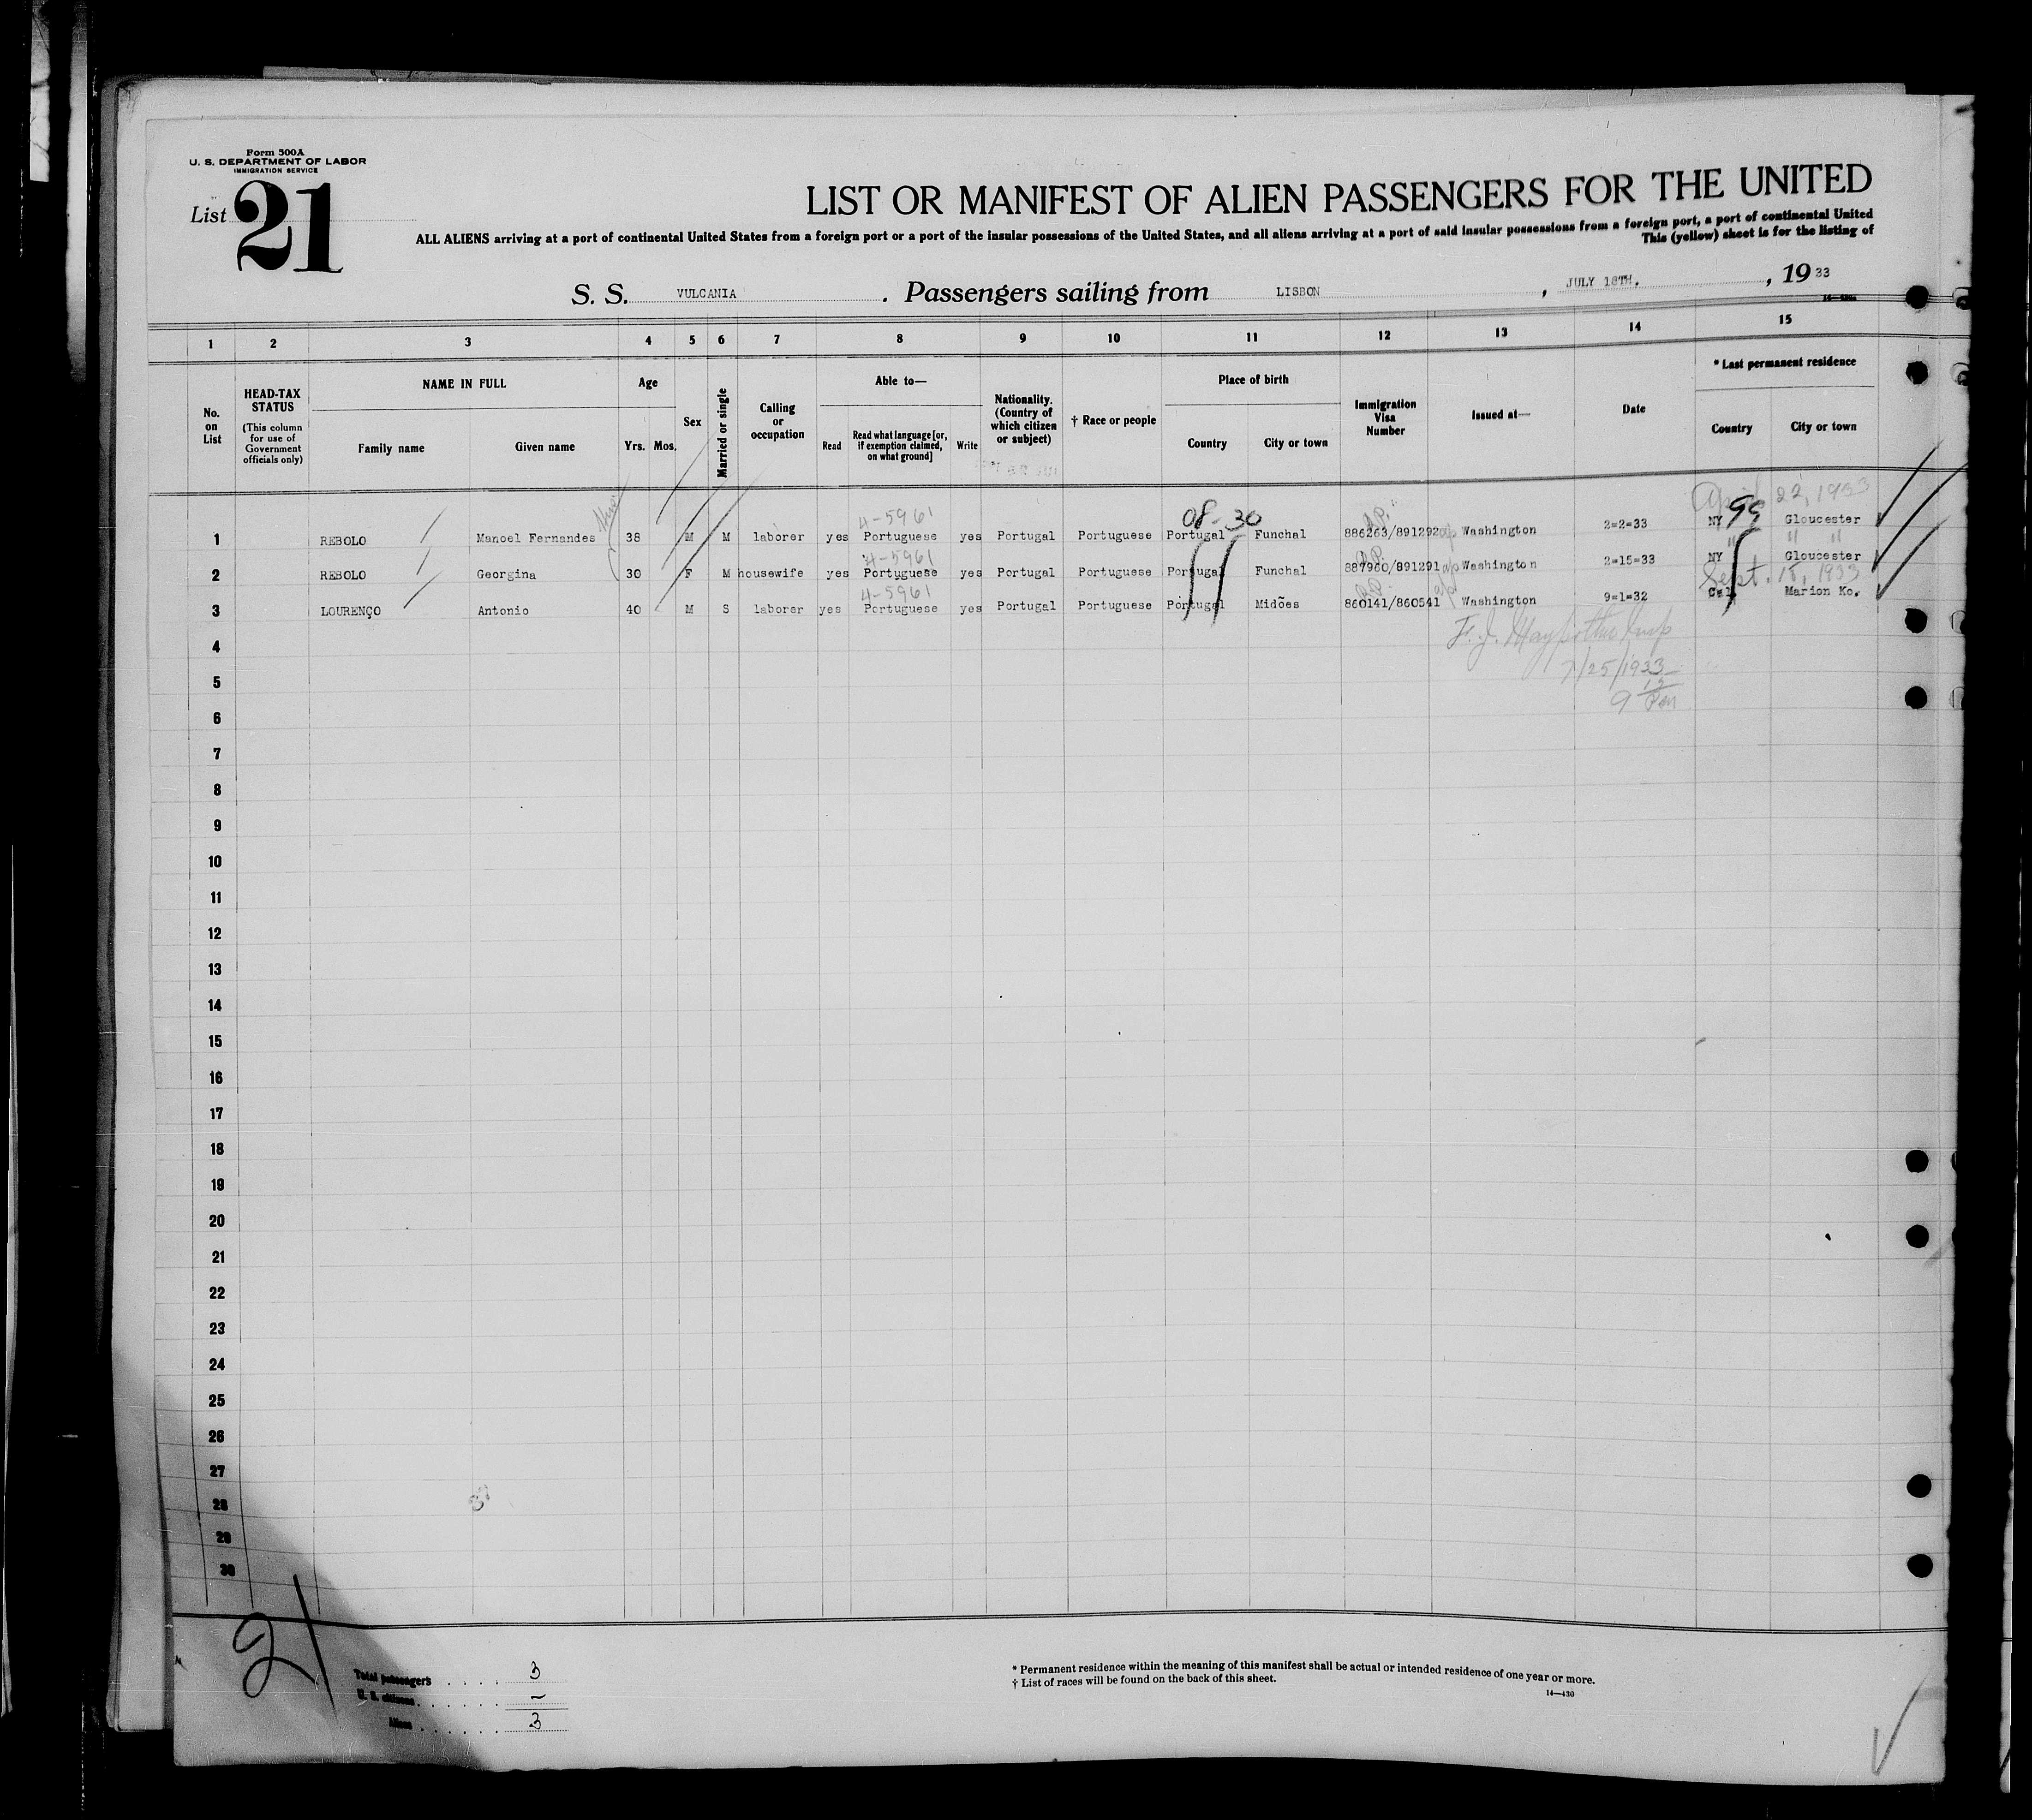 Form 500A
U. S. DEPARTMENT OF LABOR
IMMIGRATION SERVICE
List 21
LIST OR MANIFEST OF ALIEN PASSENGERS FOR THE UNITED
ALL ALIENS arriving at a port of continental United States from a foreign port or a port of the insular possessions of the United States, and all aliens arriving at a port of said insular possessions from a foreign port, a port of continental United
This (yellow) sheet is for the listing of
S. S. VULCANIA . Passengers sailing from LISBON , JULY 18TH. , 19 33
1 2 3 4 5 6 7 8 9 10 11 12 13 14 15
No. on List
HEAD-TAX STATUS (This column for use of Government officials only)
NAME IN FULL
Family name
Given name
Age
Yrs. Mos.
Sex
Married or single
Calling or occupation
Able to—
Read
Read what language [or, if exemption claimed, on what ground]
Write
Nationality. (Country of which citizen or subject)
† Race or people
Place of birth
Country
City or town
Immigration Visa Number
Issued at—
Date
* Last permanent residence
Country
City or town
April 22, 1933
4-5961 08-30 99
1 REBOLO Manoel Fernandes 38 M M laborer yes Portuguese yes Portugal Portuguese Portugal Funchal 886263/891292 Washington 2=2=33 NY Gloucester
4-5961 " " "
2 REBOLO Georgina 30 F M housewife yes Portuguese yes Portugal Portuguese Portugal Funchal 887960/891291 Washington 2=15=33 NY Gloucester
4-5961 Sept. 15, 1933
3 LOURENÇO Antonio 40 M S laborer yes Portuguese yes Portugal Portuguese Portugal Midões 860141/860541 Washington 9=1=32 Cal Marion Ko.
4
F. J.
5
7/25/1933
6
9 15 Pm
7
8
9
10
11
12
13
14
15
16
17
18
19
20
21
22
23
24
25
26
27
28
29
30
21
Total passengers . . . . 3
U. S. citizens . . . . . –
Aliens . . . . . . 3
* Permanent residence within the meaning of this manifest shall be actual or intended residence of one year or more.
† List of races will be found on the back of this sheet.
14—430